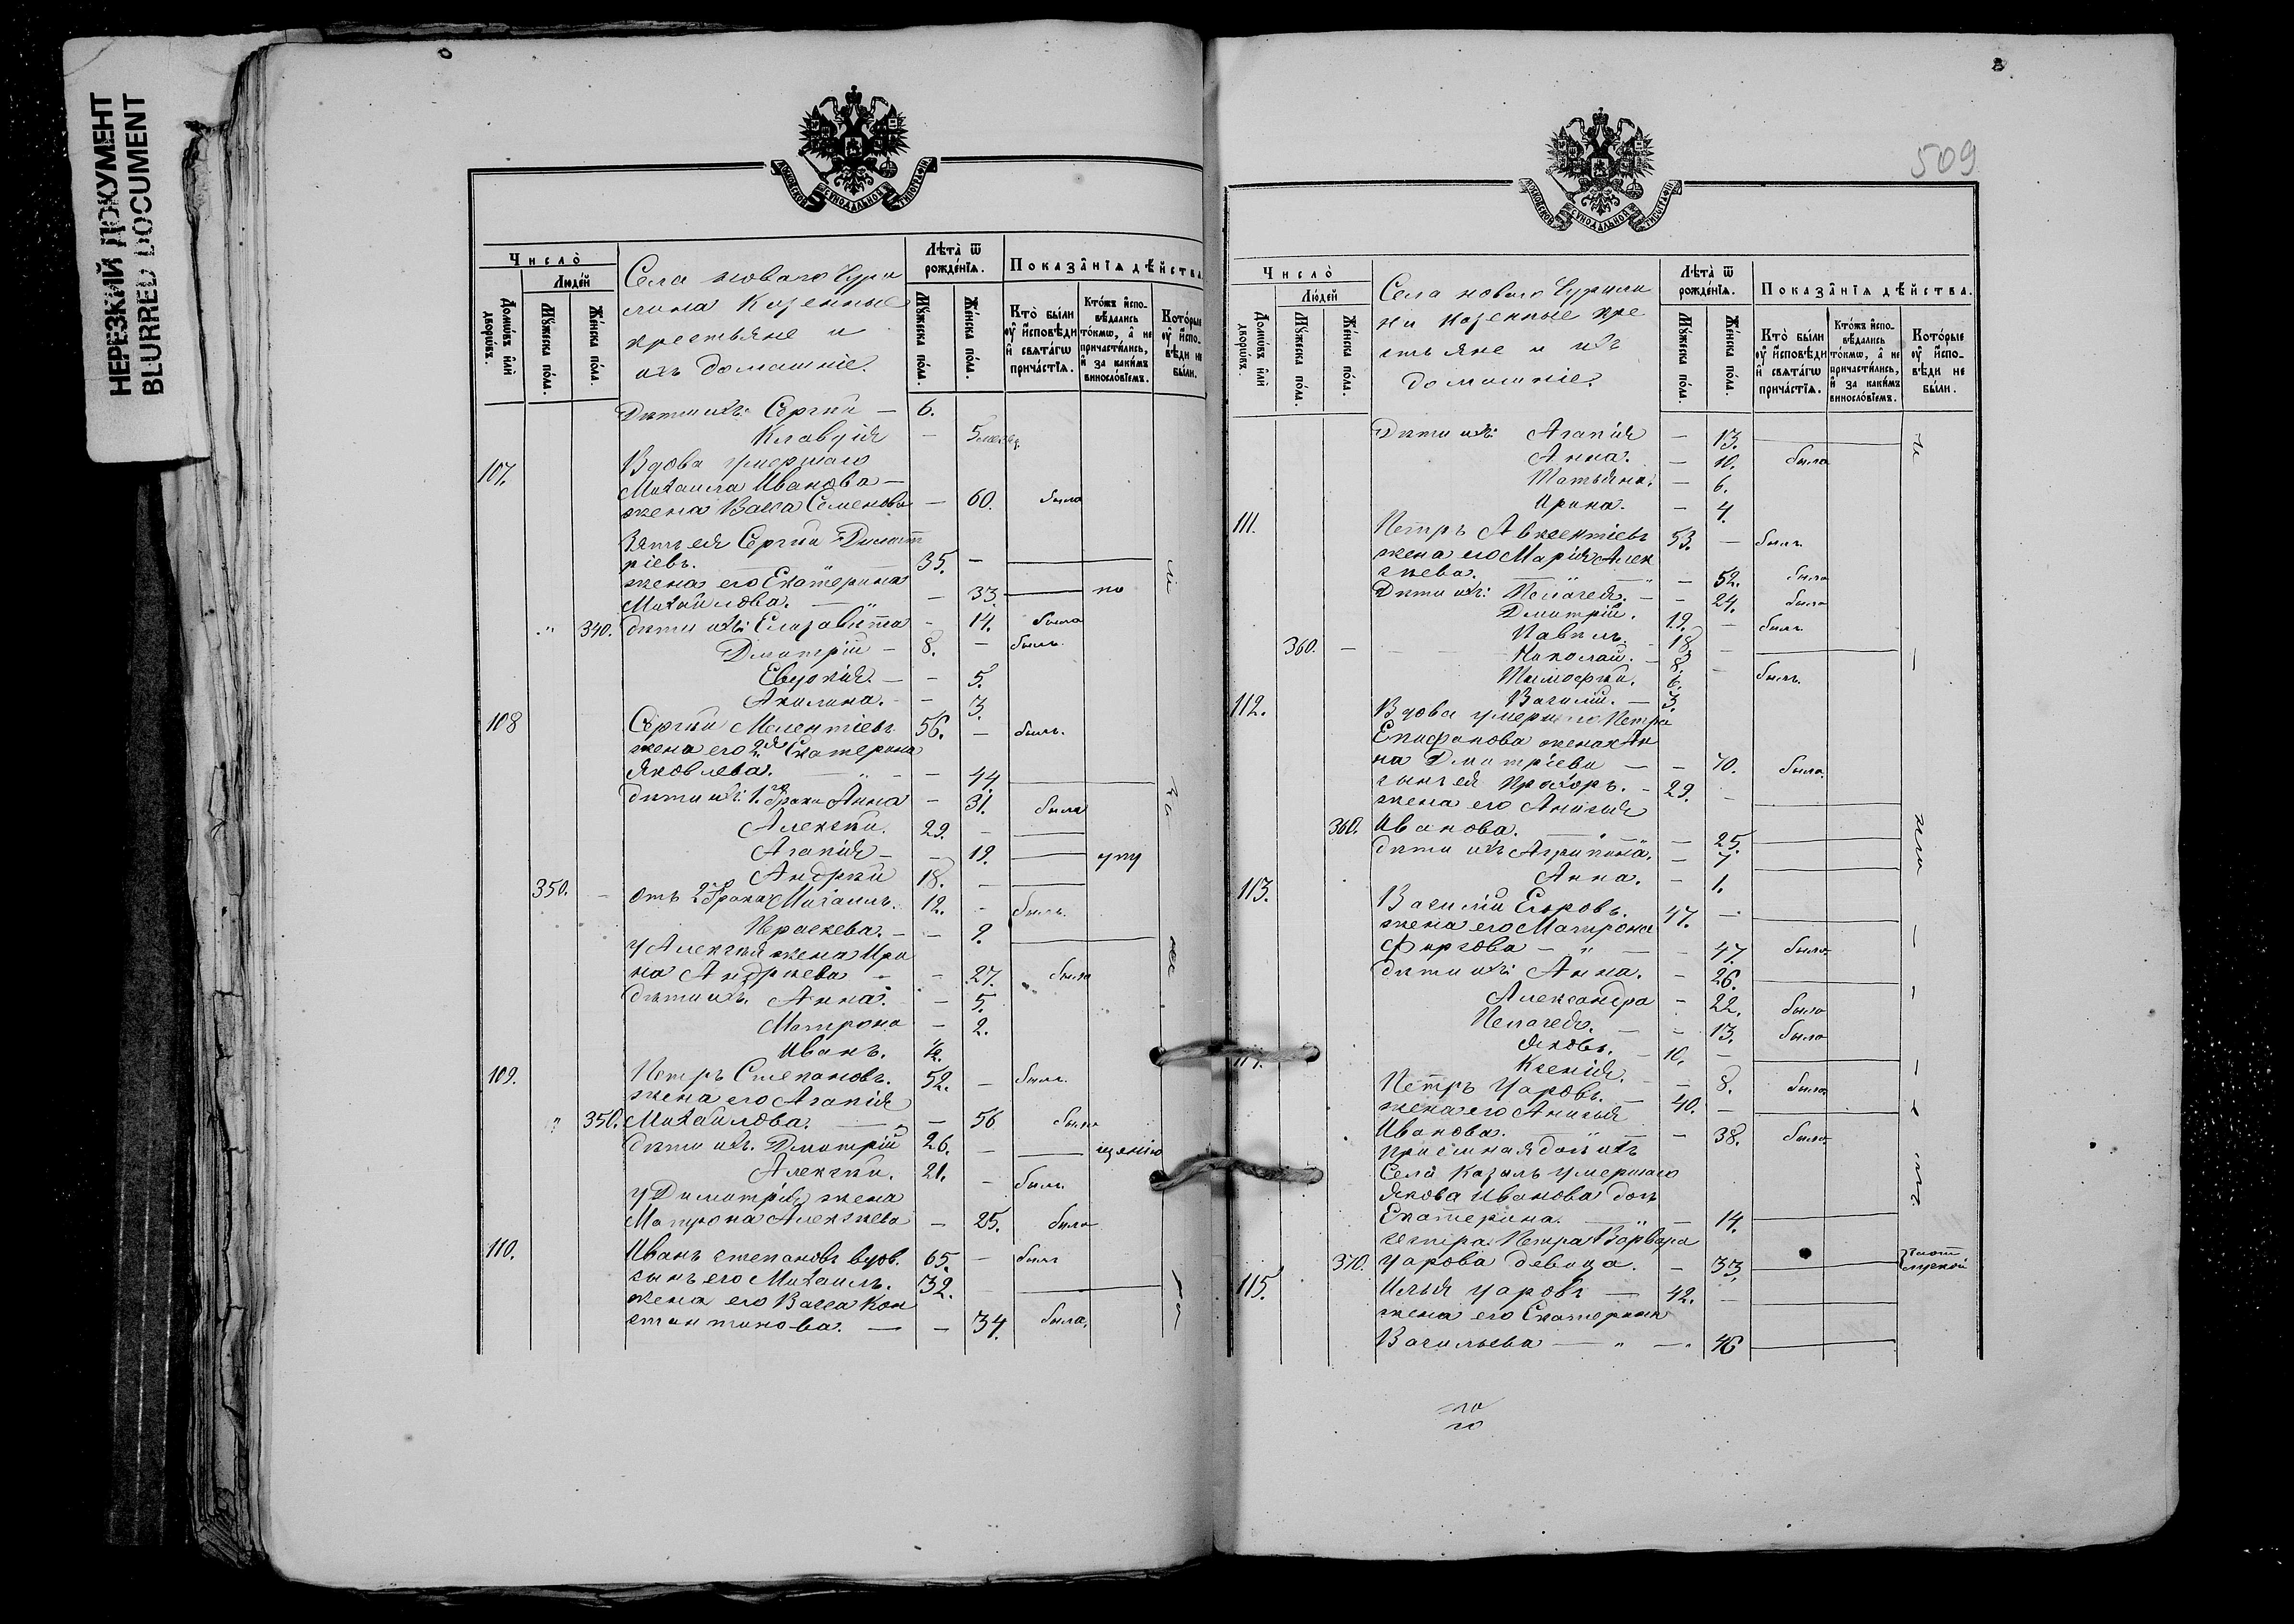 НЕРЕЗКИЙ ДОКУМЕНТ
BLURRED DOCUMENT
МОСКОВСКОЙ СѴНОДАЛЬНОЙ ТИПОГРАФІИ
Число̀
Людéй
Домѡ́въ и҆лѝ дворѡ́въ.
Мꙋ́жеска по́ла.
Же́нска по́ла.
Села новаго Чури
лина Казенные
крестьяне и
ихъ домашніе.
Лѣта̀ ѿ рожде́нїѧ.
Мꙋ́жеска по́ла.
Же́нска по́ла.
Показа̑нїѧ дѣ́йства
Кто̀ бы́ли ᲂу҆ и҆́сповѣди и҆ свѧта́гѡ прича́стїѧ.
Кто́жъ и҆спо-вѣ́дались то́кмѡ, а҆ не причасти́лись, и҆ за каки́мъ винosло́вїемъ.
Кото́рые ᲂу҆ и҆спо-вѣди не бы́ли.
Дѣти ихъ: Сергѣй — 6.
Клавдія — 5 месяц.
107. Вдова умершаго
Михаила Иванова —
жена Васса Семенова — 60. была
Зять ея Сергѣй Димит
ріевъ. 35. —
жена его Екатерина
Михайлова. — 33. по
" 340. дѣти ихъ: Елизавѣта — 14. была
Дмитрій — 8. — былъ.
Евдокія. — — 5.
Акилина. — — 3.
108 Сергѣй Мелентіевъ 56. — былъ.
жена его 2я Екатерина
Яковлева. — " — — 44.
дѣти ихъ: 1го брака Анна — 31. была
Алексѣй. 29. —
Агапія — — 19. упу
Андрей 18. —
350. — отъ 2го брака Михаилъ. 12. — былъ.
Параскева. — — 9.
у Алексѣя жена Ири
на Андреева — — 27. была
дѣти ихъ. Анна. — 5.
Матрона — 2.
Иванъ. ½.
109. Петръ Степановъ. 52. — былъ.
жена его Агапія
" 350. Михайлова. — — 56 была
дѣти ихъ. Дмитрій 26. — щенію
Алексѣй. 21. — былъ.
у Димитрія жена
Матрона Алексѣева — 25. была
110. Иванъ Степановъ вдов. 65. — былъ
сынъ его Михаилъ. 32. —
жена его Васса Кон
стантинова. — — 34. была.
509
МОСКОВСКОЙ СѴНОДАЛЬНОЙ ТИПОГРАФІИ
Число̀
Людéй
Домѡ́въ и҆лѝ дворѡ́въ.
Мꙋ́жеска по́ла.
Же́нска по́ла.
Села новаго Чурили
на Казенные кре
стьяне и ихъ
домашніе.
Лѣта̀ ѿ рожде́нїѧ.
Мꙋ́жеска по́ла.
Же́нска по́ла.
Показа̑нїѧ дѣ́йства.
Кто̀ бы́ли ᲂу҆ и҆́сповѣди и҆ свѧта́гѡ прича́стїѧ.
Кто́жъ и҆спо-вѣ́дались то́кмѡ, а҆ не причасти́лись, и҆ за каки́мъ винosло́вїемъ.
Кото́рые ᲂу҆ и҆спо-вѣди не бы́ли.
Дѣти ихъ: Агапія — 13.
Анна. — 10. была
Татьяна. — 6.
Ирина. — 4.
111. Петръ Авксентіевъ 53. — былъ.
жена его Марія Алек
сѣева. — " — 52. была
Дѣти ихъ: Пелагея. — — 24. была
Дмитрій. 19. — былъ.
Павелъ. — 18
360. — Николай. — 8. —
Тимоѳей. 6. былъ.
Василій. — 3.
112. Вдова умершаго Петра
Епифанова жена Ан
на Дмитріева — — 70. была.
сынъ ея Прохоръ. — 29. —
жена его Анисья
360. Иванова. — 25.
дѣти ихъ Агрипина. — 7
Анна. — 1.
113. Василій Егоровъ. 47. —
жена его Матрона
Фирсова — " — 47. была
дѣти ихъ: Анна. — 26.
Александра — 22. была
Пелагея. — — 13. была
Яковъ. — 10. —
Ксенія. — — 8. была.
Петръ Уаровъ. — 40. —
жена его Анисья
Иванова. — — 38. была
Села Казыль умершаго
Якова Иванова дочь
Екатерина. — " — 14.
сестра Петра Варвара
370. Уарова девица. — 33.
115. Илья Уаровъ — 42. —
жена его Екатерина
Васильева — " — 46